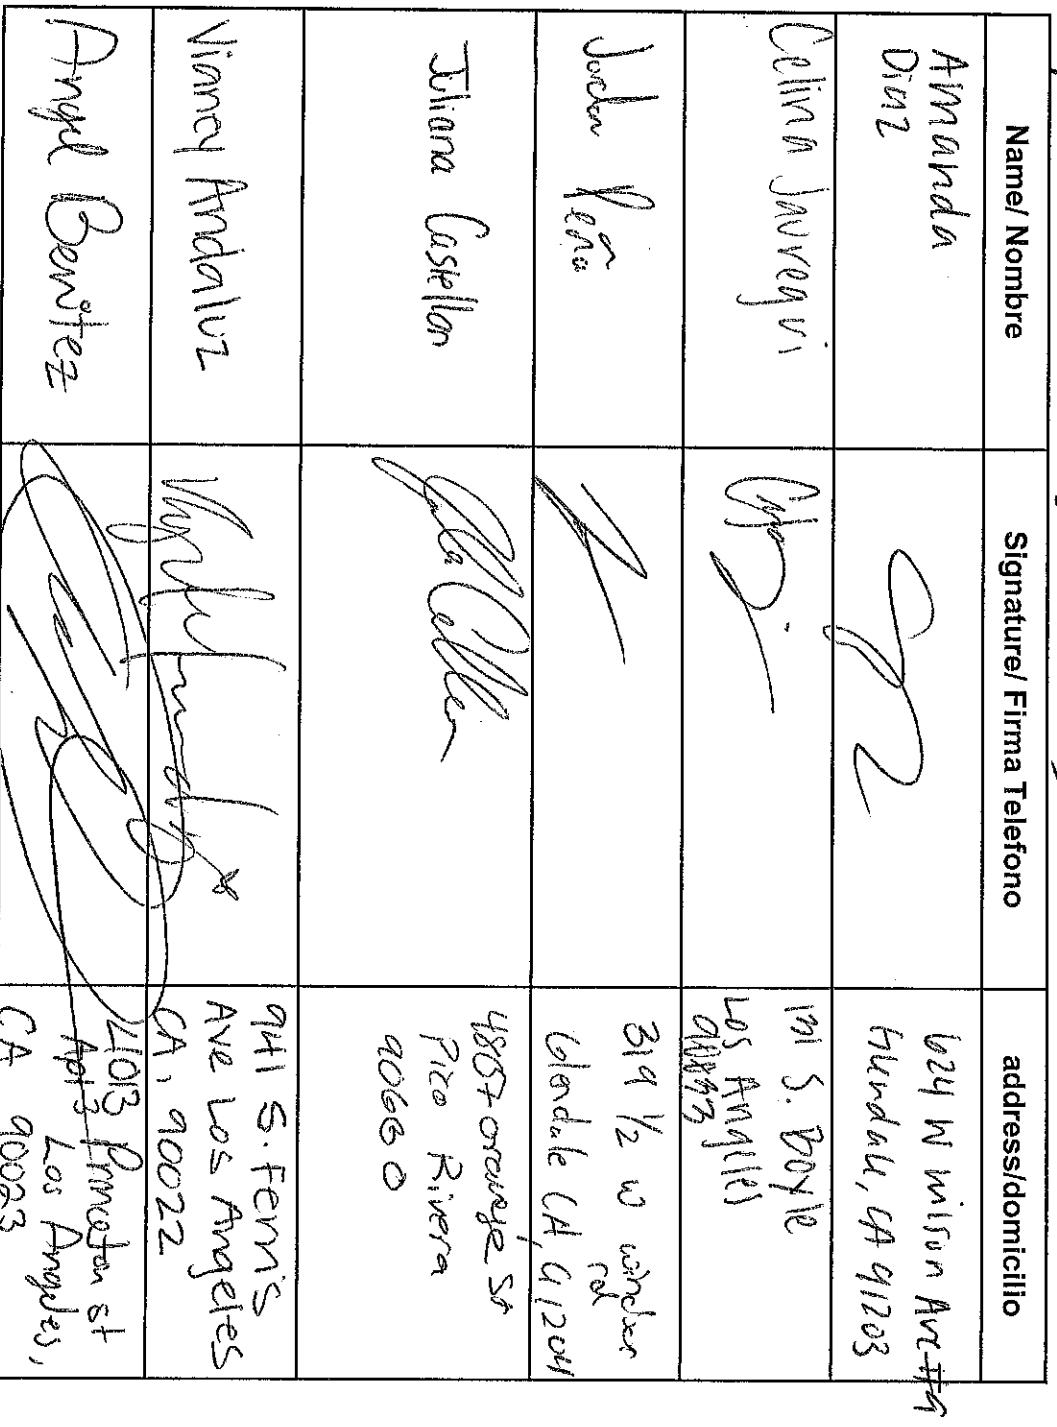 Name/ Nombre
Signature/ Firma Telefono
address/domicilio
Amanda
Diaz
624 W Wilson Ave #9
Glendale, CA 91203
Celina Jauregui
131 S. Boyle
Los Angeles
Jordan Peña
319 1/2 W windsor
rd
Glendale CA, 91204
Juliana Castellon
orange St
Pico Rivera
90660
Vianey Andaluz
941 S. Ferris
Ave Los Angeles
CA, 90022
Angel Benitez
Princeton st
Apt 3 Los Angeles,
CA 90023